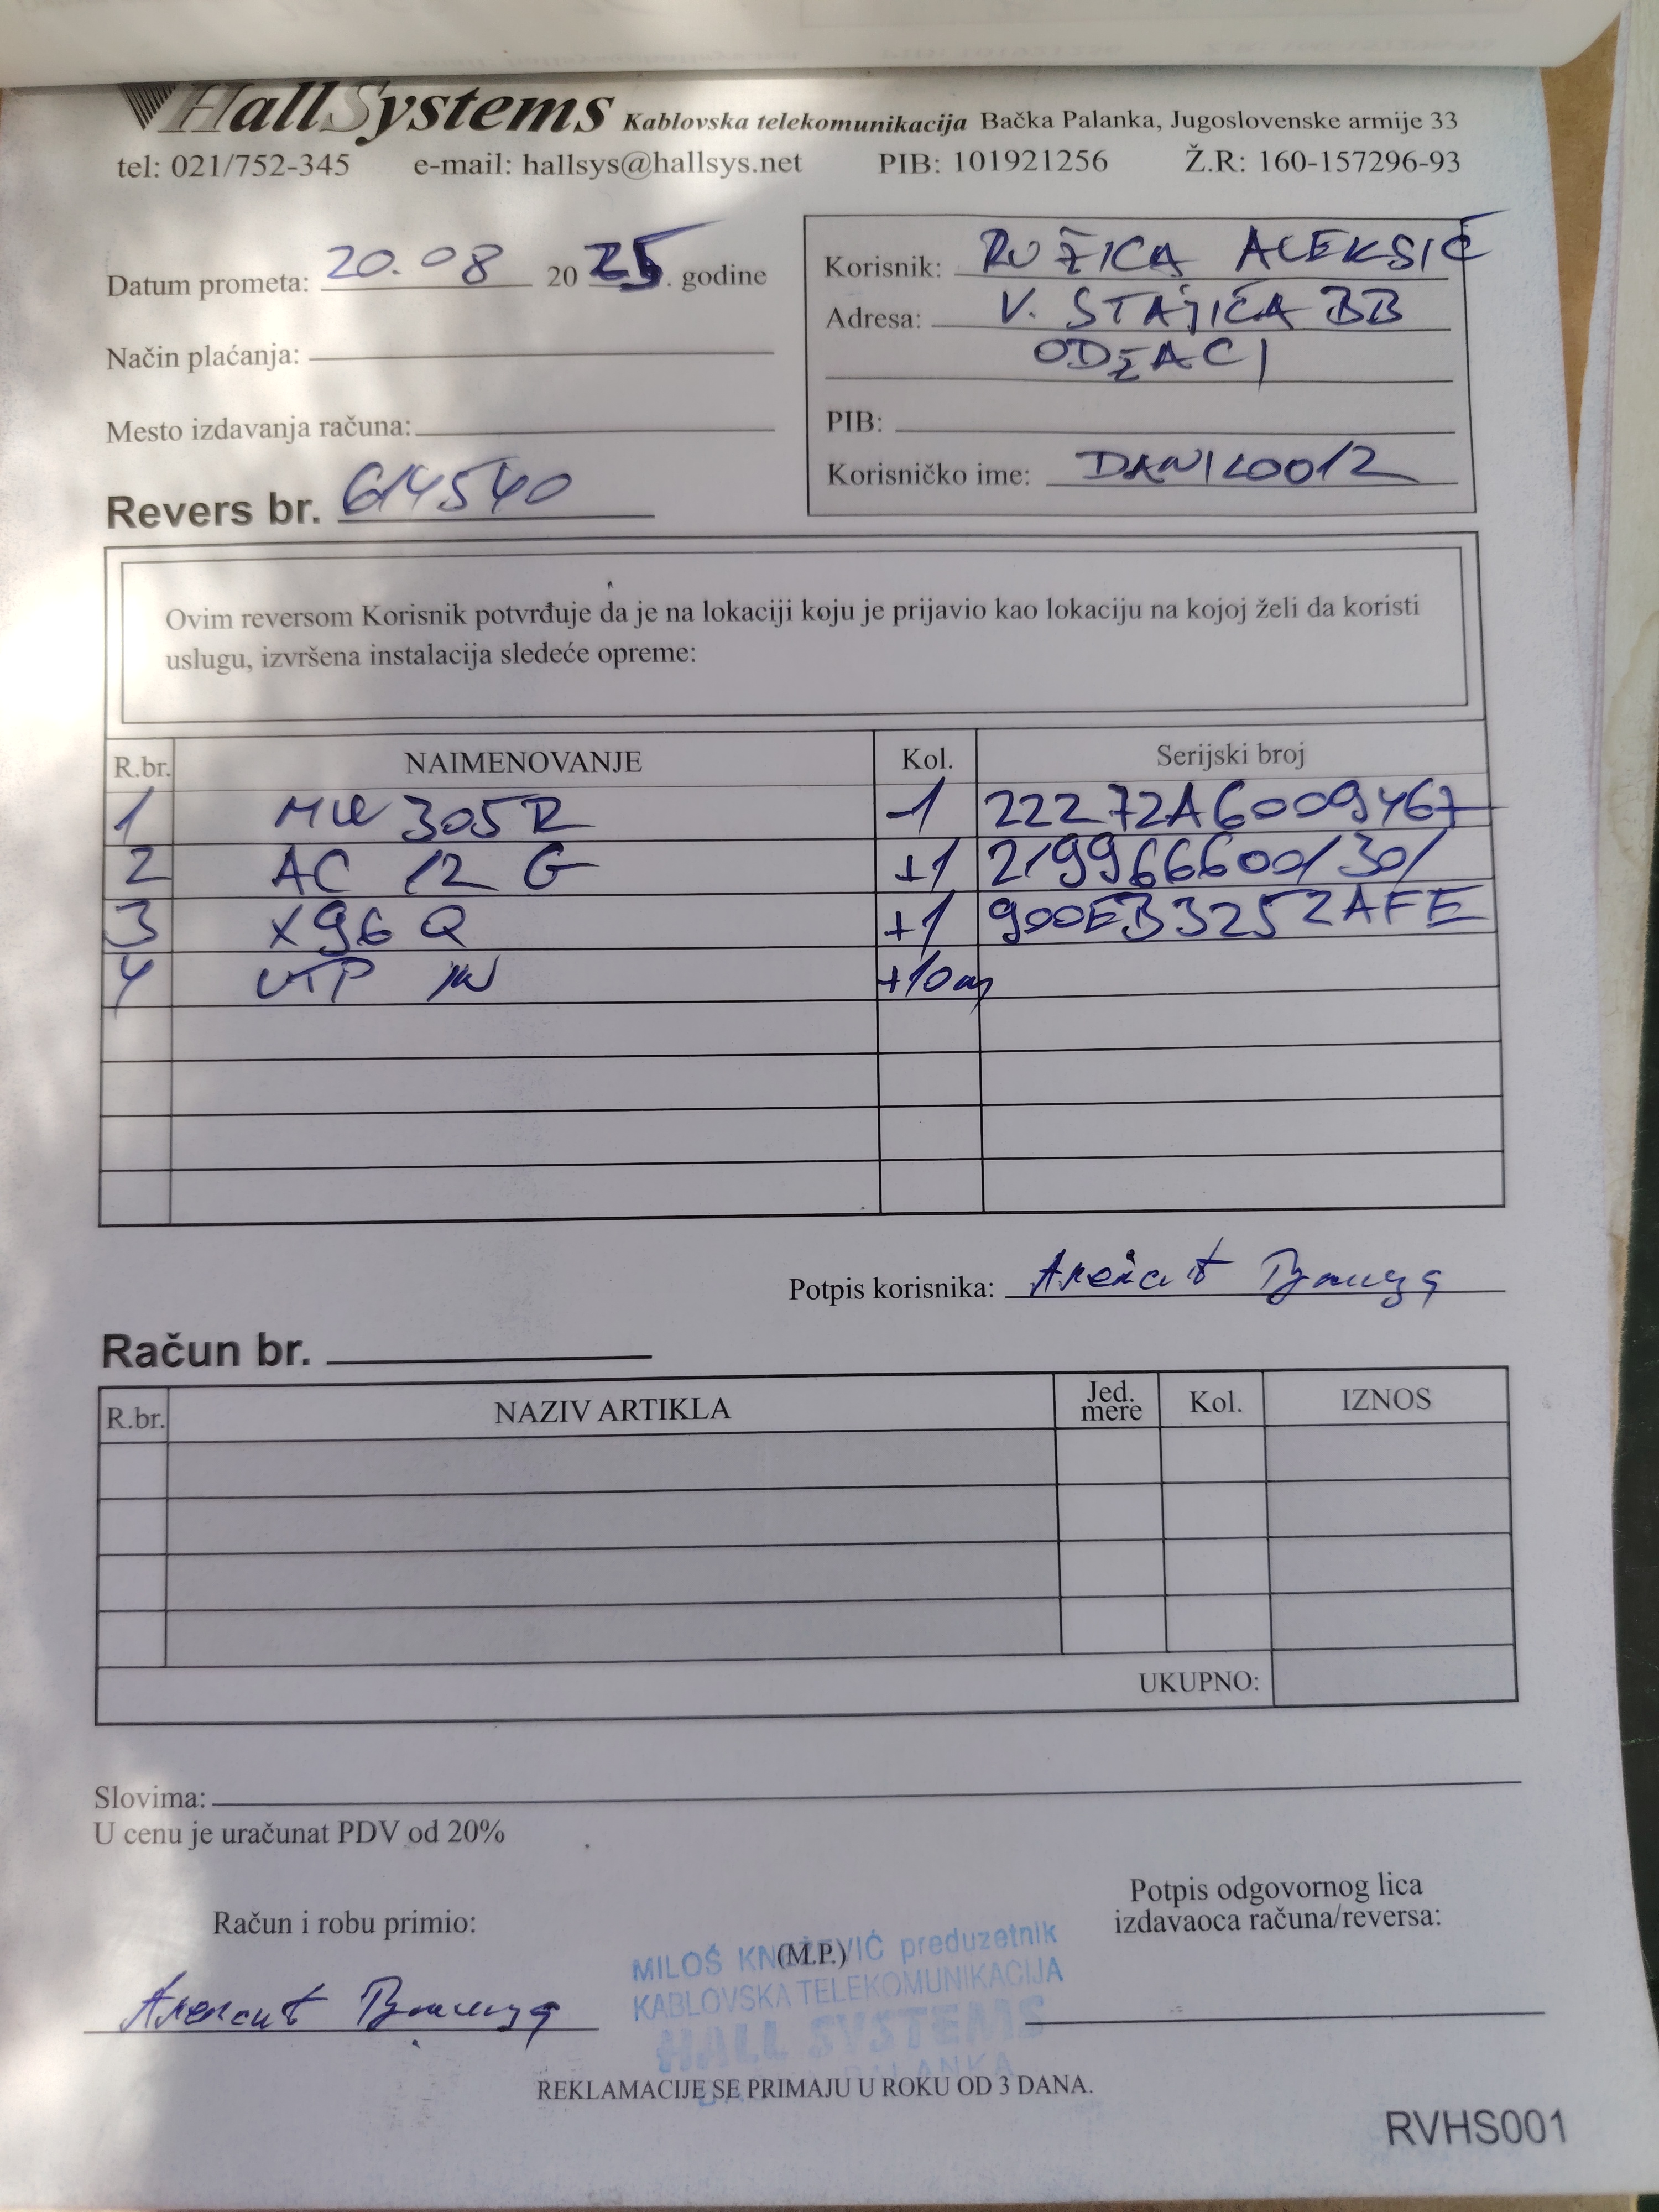 HallSystems Kablovska telekomunikacija Bačka Palanka, Jugoslovenske armije 33
tel: 021/752-345 e-mail: hallsys@hallsys.net PIB: 101921256 Ž.R: 160-157296-93
Datum prometa: 20.08 2025. godine
Način plaćanja:
Mesto izdavanja računa:
Revers br. 614540
Korisnik: RUŽICA ALEKSIĆ
Adresa: V. STAJIĆA BB
ODŽACI
PIB:
Korisničko ime: DANILO012
Ovim reversom Korisnik potvrđuje da je na lokaciji koju je prijavio kao lokaciju na kojoj želi da koristi
uslugu, izvršena instalacija sledeće opreme:
R.br. NAIMENOVANJE Kol. Serijski broj
1 MW 305R -1 22272A6009467
2 AC 12 G +1 2199666001301
3 X96 Q +1 900EB3252AFE
4 UTP +10m
Potpis korisnika: Алексић Ружица
Račun br.
R.br. NAZIV ARTIKLA Jed. mere Kol. IZNOS
UKUPNO:
Slovima:
U cenu je uračunat PDV od 20%
Račun i robu primio:
Алексић Ружица
(M.P.)
MILOŠ KNEŽEVIĆ preduzetnik
KABLOVSKA TELEKOMUNIKACIJA
HALL SYSTEMS
PALANKA
Potpis odgovornog lica
izdavaoca računa/reversa:
REKLAMACIJE SE PRIMAJU U ROKU OD 3 DANA.
RVHS001